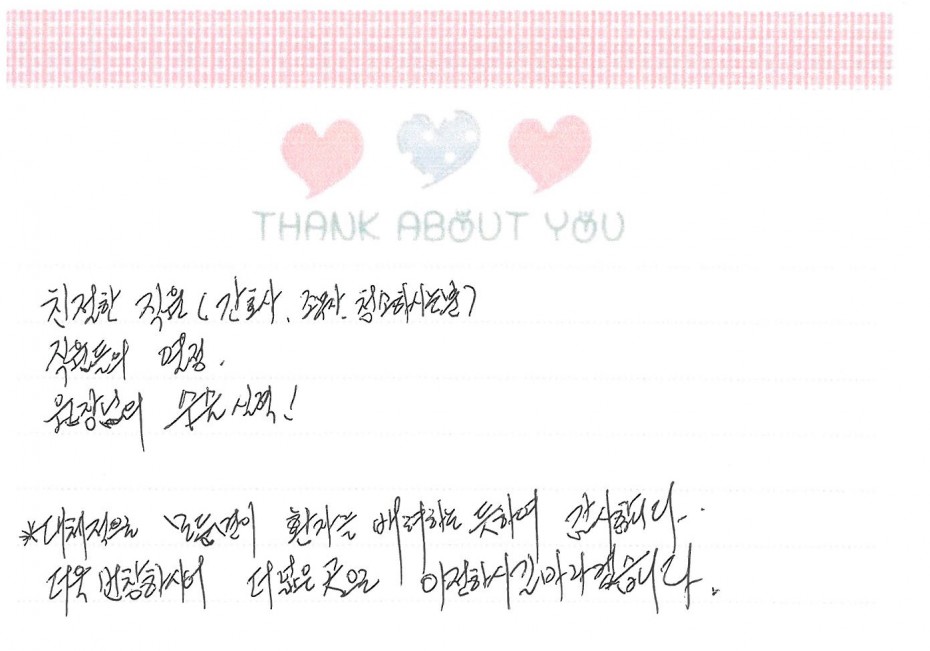 THANK ABOUT YOU
친절한 직원 (간호사, 조무사, 청소하시는분)
직원들의 열정.
원장님의 실력!
*대체적으로 모든면이 환자를 배려하는 듯하여 감사합니다..
더욱 번창하시어 더 넓은 곳으로 이전하시길 바라겠습니다.